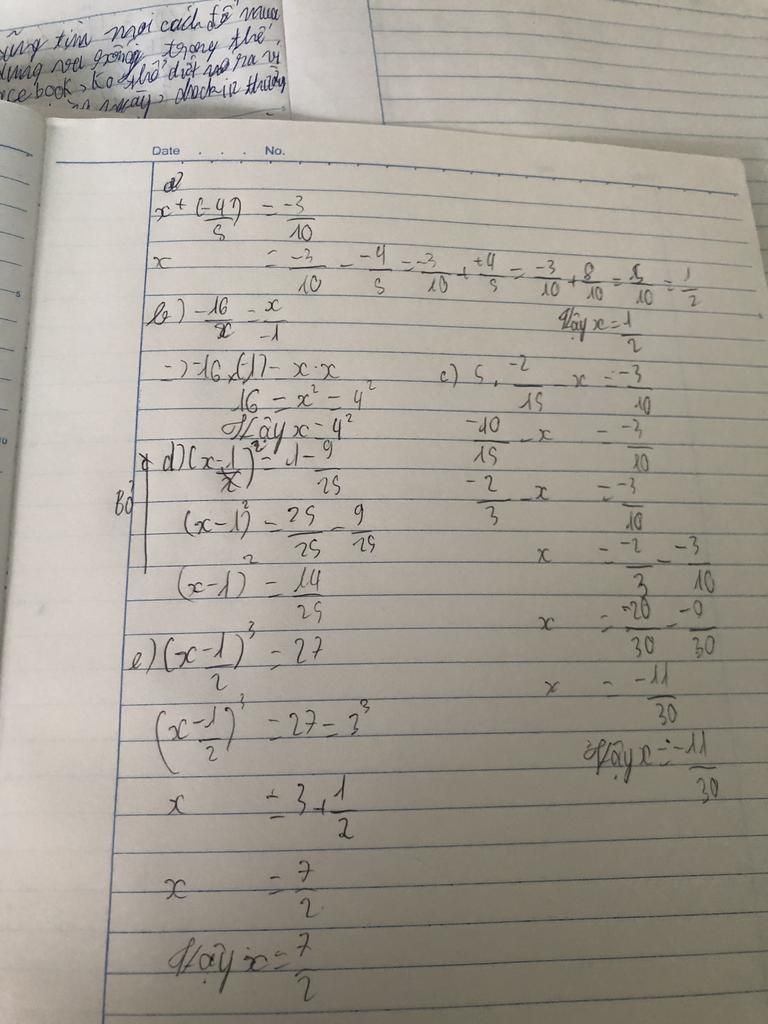 ũng tìm mọi cách để mua
dụng và sống trong thế
cebook, ko thể diệt nó ra vì
Date . . . No.
a)
x + (-4)/5 = -3/10
x = -3/10 - -4/5 = -3/10 + +4/5 = -3/10 + 8/10 = 5/10 = 1/2
Vậy x = 1/2
b) -16/x = x/-1
=> -16.(-1) = x.x
16 = x² = 4²
Vậy x = 4²
c) 5. -2/15 - x = -3/10
-10/15 - x = -3/10
-2/3 - x = -3/10
x = -2/3 - -3/10
x = -20/30 - -9/30
x = -11/30
Vậy x = -11/30
Bỏ
d) (x-1/2)² = 1 - 9/25
(x-1)² = 25/25 - 9/25
(x-1)² = 14/25
e) (x-1/2)³ = 27
(x-1/2)³ = 27 = 3³
x = 3 + 1/2
x = 7/2
Vậy x = 7/2